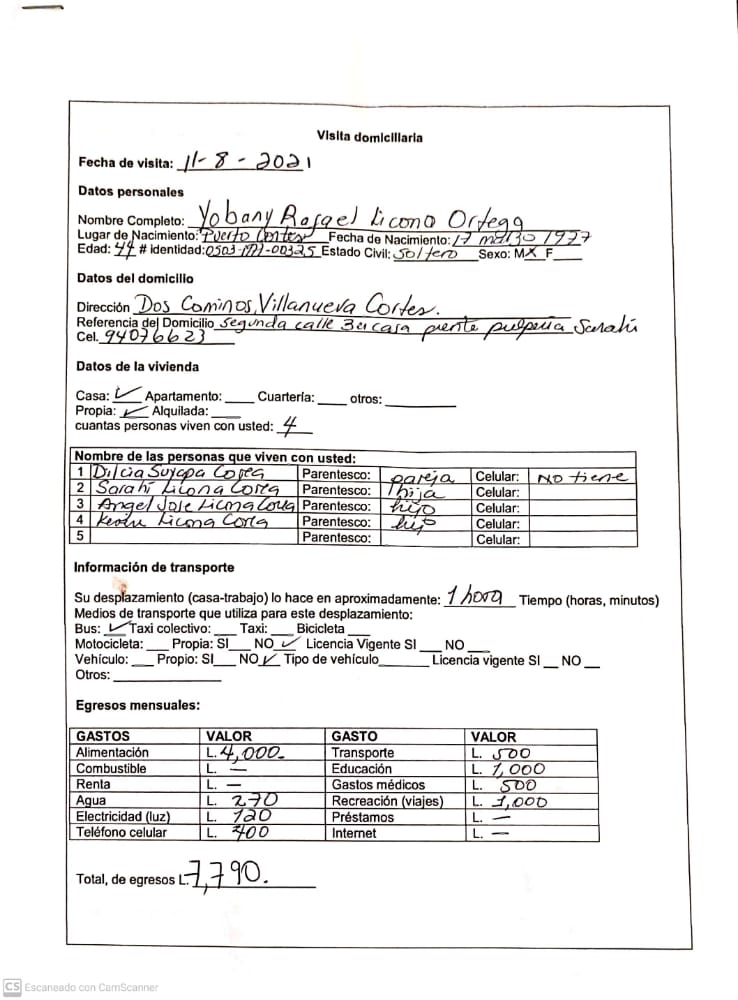 Visita domiciliaria
Fecha de visita: 11-8-2021
Datos personales
Nombre Completo: Yobany Rafael Licona Ortega
Lugar de Nacimiento: Puerto Cortes Fecha de Nacimiento: 17 marzo 1977
Edad: 44 # identidad: 0503-1977-00325 Estado Civil: Soltero Sexo: M X F___
Datos del domicilio
Dirección Dos Caminos, Villanueva Cortes.
Referencia del Domicilio segunda calle 3era casa frente pulperia Sarahi
Cel. 94076623
Datos de la vivienda
Casa: ✓ Apartamento: ____ Cuartería: ____ otros: ____
Propia: ✓ Alquilada: ____
cuantas personas viven con usted: 4
Nombre de las personas que viven con usted:
1 Dilcia Suyapa Corea Parentesco: pareja Celular: NO tiene
2 Sarahi Licona Corea Parentesco: hija Celular:
3 Angel Jose Licona Corea Parentesco: hijo Celular:
4 Licona Corea Parentesco: hijo Celular:
5 Parentesco: Celular:
Información de transporte
Su desplazamiento (casa-trabajo) lo hace en aproximadamente: 1 hora Tiempo (horas, minutos)
Medios de transporte que utiliza para este desplazamiento:
Bus: ✓ Taxi colectivo: ___ Taxi: ___ Bicicleta ___
Motocicleta: ___ Propia: SI___ NO ✓ Licencia Vigente SI ___ NO ___
Vehículo: ___ Propio: SI___ NO ✓ Tipo de vehículo______ Licencia vigente SI __ NO __
Otros: ____________
Egresos mensuales:
GASTOS VALOR GASTO VALOR
Alimentación L. 4,000. Transporte L. 500
Combustible L. — Educación L. 1,000
Renta L. — Gastos médicos L. 500
Agua L. 270 Recreación (viajes) L. 1,000
Electricidad (luz) L. 120 Préstamos L. —
Teléfono celular L. 400 Internet L. —
Total, de egresos L. 7,790.
CS Escaneado con CamScanner